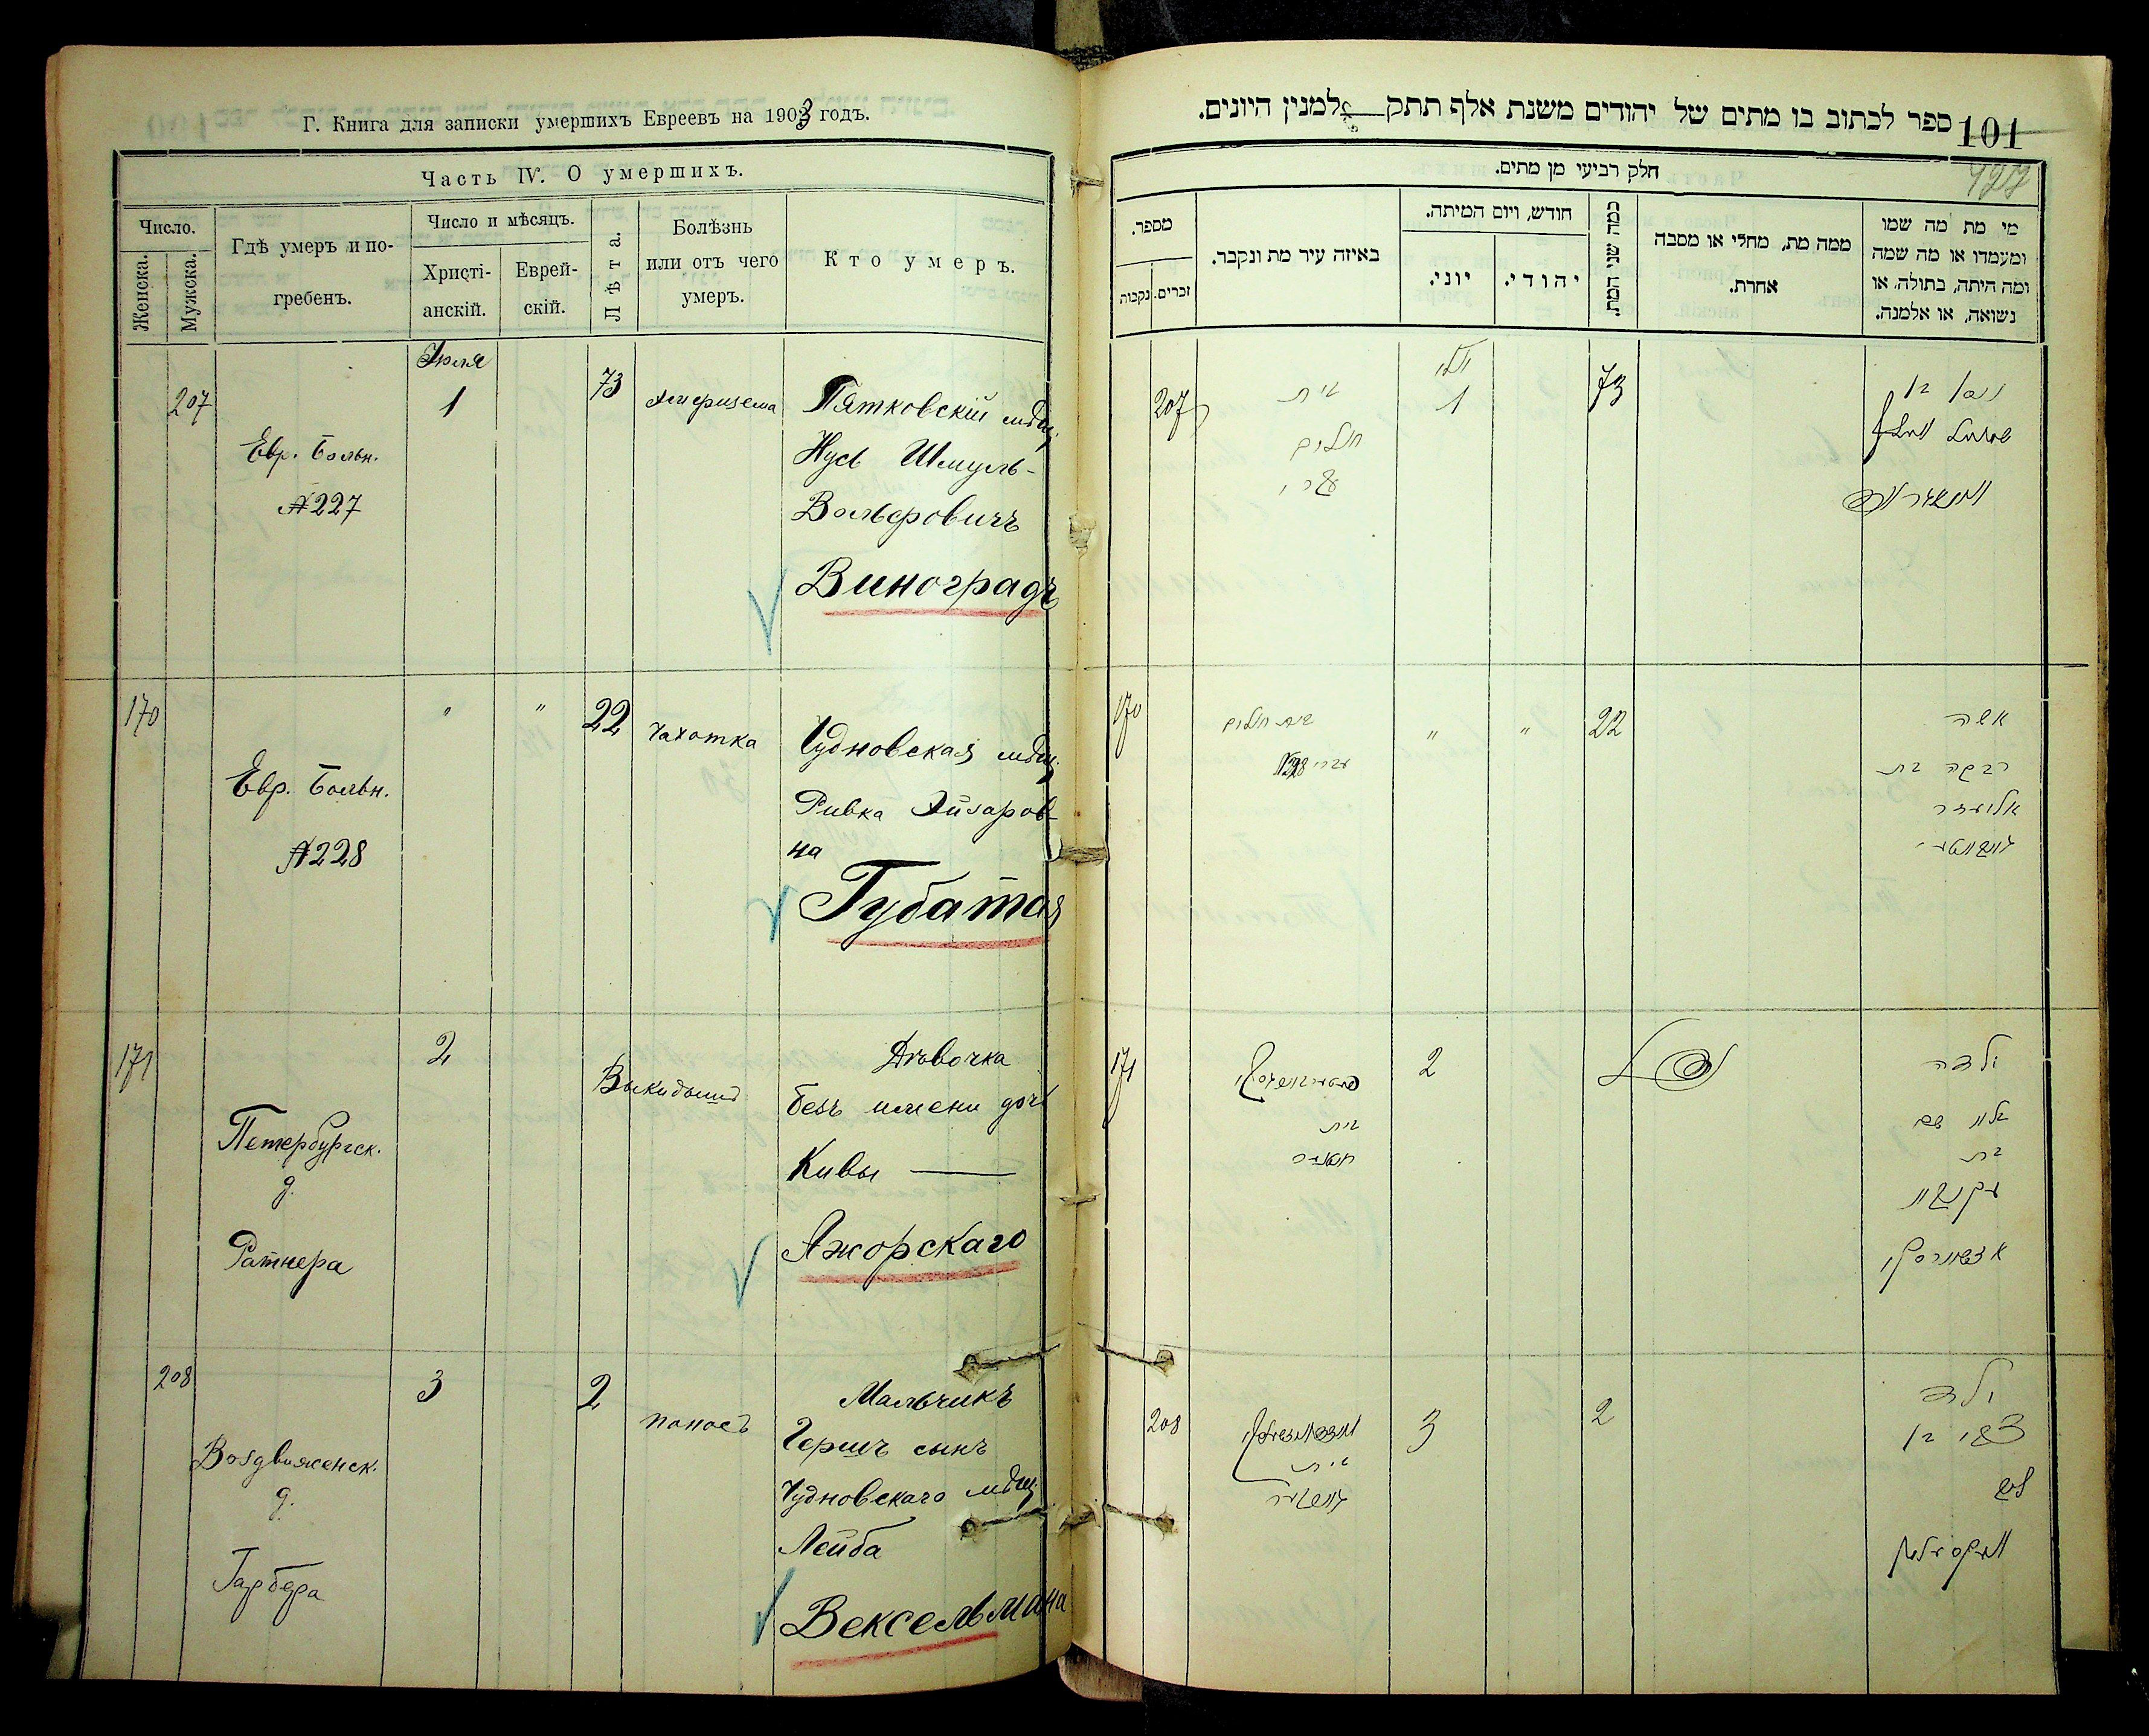 Г. Книга для записки умершихъ Евреевъ на 1903 годъ.
Часть IV. О умершихъ.
Число.
Женска.
Мужска.
Гдѣ умеръ и по-
гребенъ.
Число и мѣсяцъ.
Христі-
анскій.
Еврей-
скій.
Лѣта.
Болѣзнь
или отъ чего
умеръ.
Кто умеръ.
207
Евр. Больн.
№227
Іюля
1
73
Пятковскій мѣщ.
Нусь Шмуль-
Вольфовичъ
Виноградъ
170
Евр. Больн.
№228
"
"
22
Чахотка
Чудновская мѣщ.
Ривка Эйзаров-
на
Губатая
171
Петербургск.
д.
Ратнера
2
Выкидышъ
Дѣвочка
безъ имени дочь
Кивы —
Ажорскаго
208
Воздвиженск.
д.
Гарбера
3
2
поносъ
Мальчикъ
Гершъ сынъ
Чудновскаго мѣщ.
Лейба
Вексельмана
ספר לכתוב בו מתים של יהודים משנת אלף תתק לממנין היונים.
101
חלק רביעי מן מתים.
מספר.
נקבות
זכרים.
באיזה עיר מת ונקבר.
חודש, ויום המיתה.
יוני.
יהודי.
כמה שני המת.
ממה מת, מחלי או מסבה
אחרת.
מי מת מה שמו
ומעמדו או מה שמה
ומה היתה, בתולה, או
נשואה, או אלמנה.
207
בית
חולים
עברי
יולי
1
73
170
בית חולים
עברי 228
"
"
22
אשה
רבקה בת
אליעזר
171
בית
2
ילדה
בלי שם
בת
עקיבא
208
בית
3
2
ילד
צבי בן
ליב